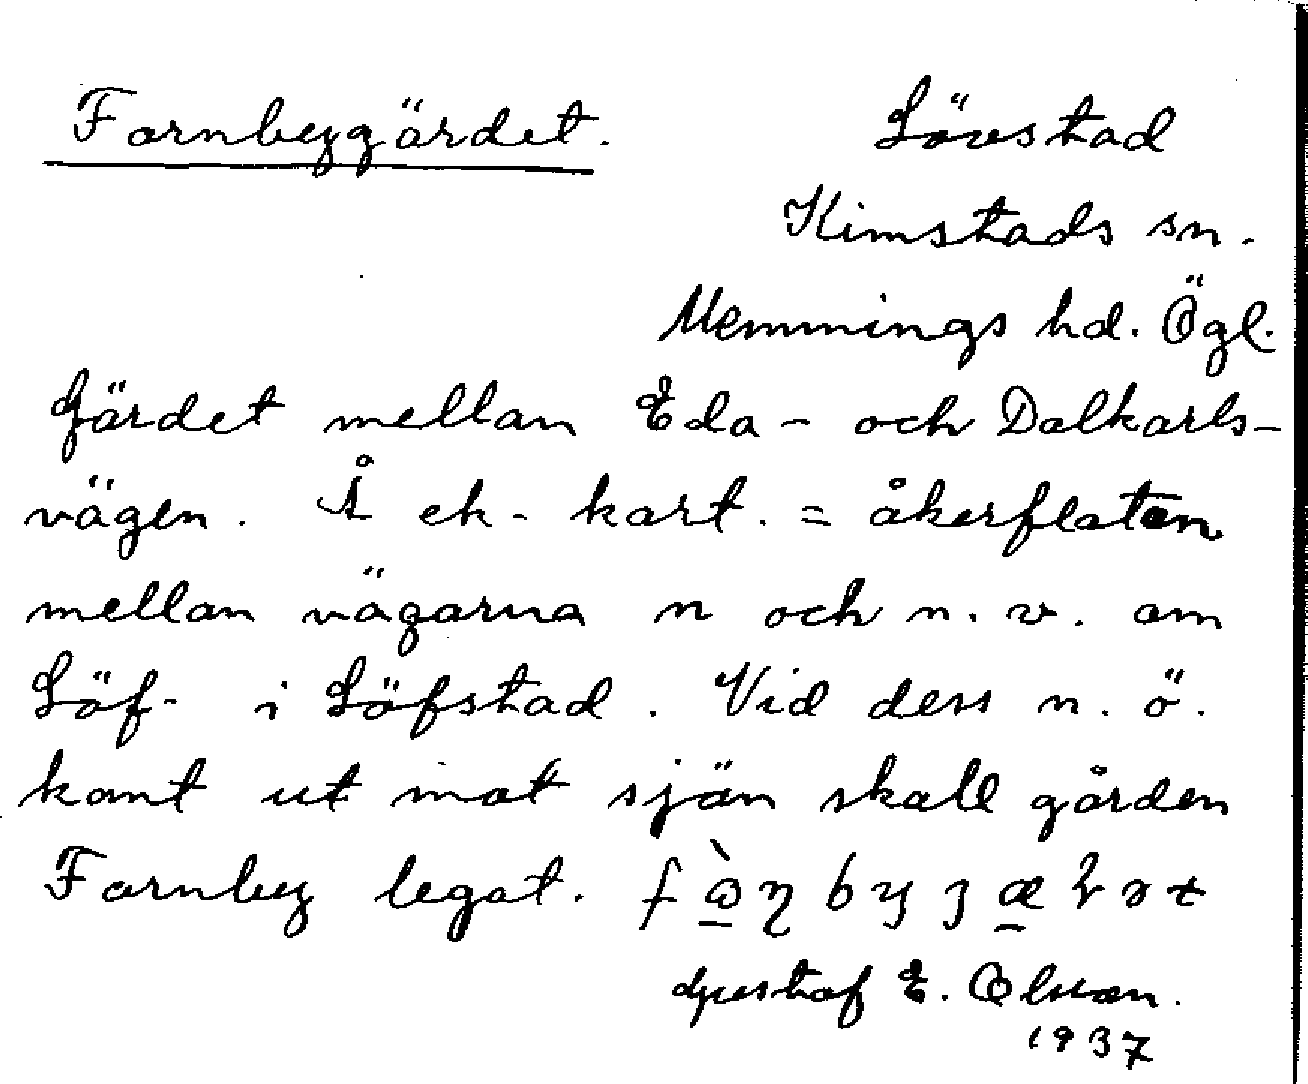 Fornbygärdet. Lövstad
Kimstads sn.
Memmings hd. Ögl.
Gärdet mellan Eda- och Dalkarls-
vägen. Å ek. kart. = åkerflaten
mellan vägarna n och n. v. om
Löf- i Löfstad. Vid dess n. ö.
kant ut mot sjön skall gården
Fornby legat.
Gustaf E. Olsson.
1937